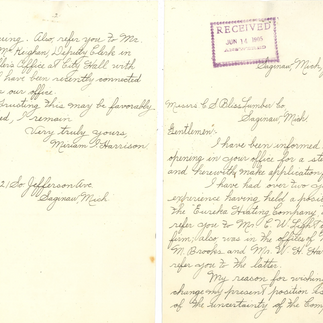 2
ering. Also, refer you to Mr
Mc Keighan, Deputy Clerk in
Office at City Hall with
have been recently connected
our office.
Trusting this may be favorably
ed, I remain
Very truly yours,
Miriam Harrison.
21 So Jefferson Ave
Saginaw Mich
RECEIVED
JUN 14 1905
Saginaw, Mich
Messrs C S Bliss Lumber Co
Saginaw Mich
Gentlemen:-
I have been informed
opening in your office for a ste
and herewith make applicat
I have had over two y
experience having held a posi
the "Eureka Heating Company
refer you to Mr E. W.
firm; also was in the office of
M. Brooker and Mr. W. H. Har
refer you to the latter.
My reason for wishin
change my present position is
of the uncertainty of the Comp